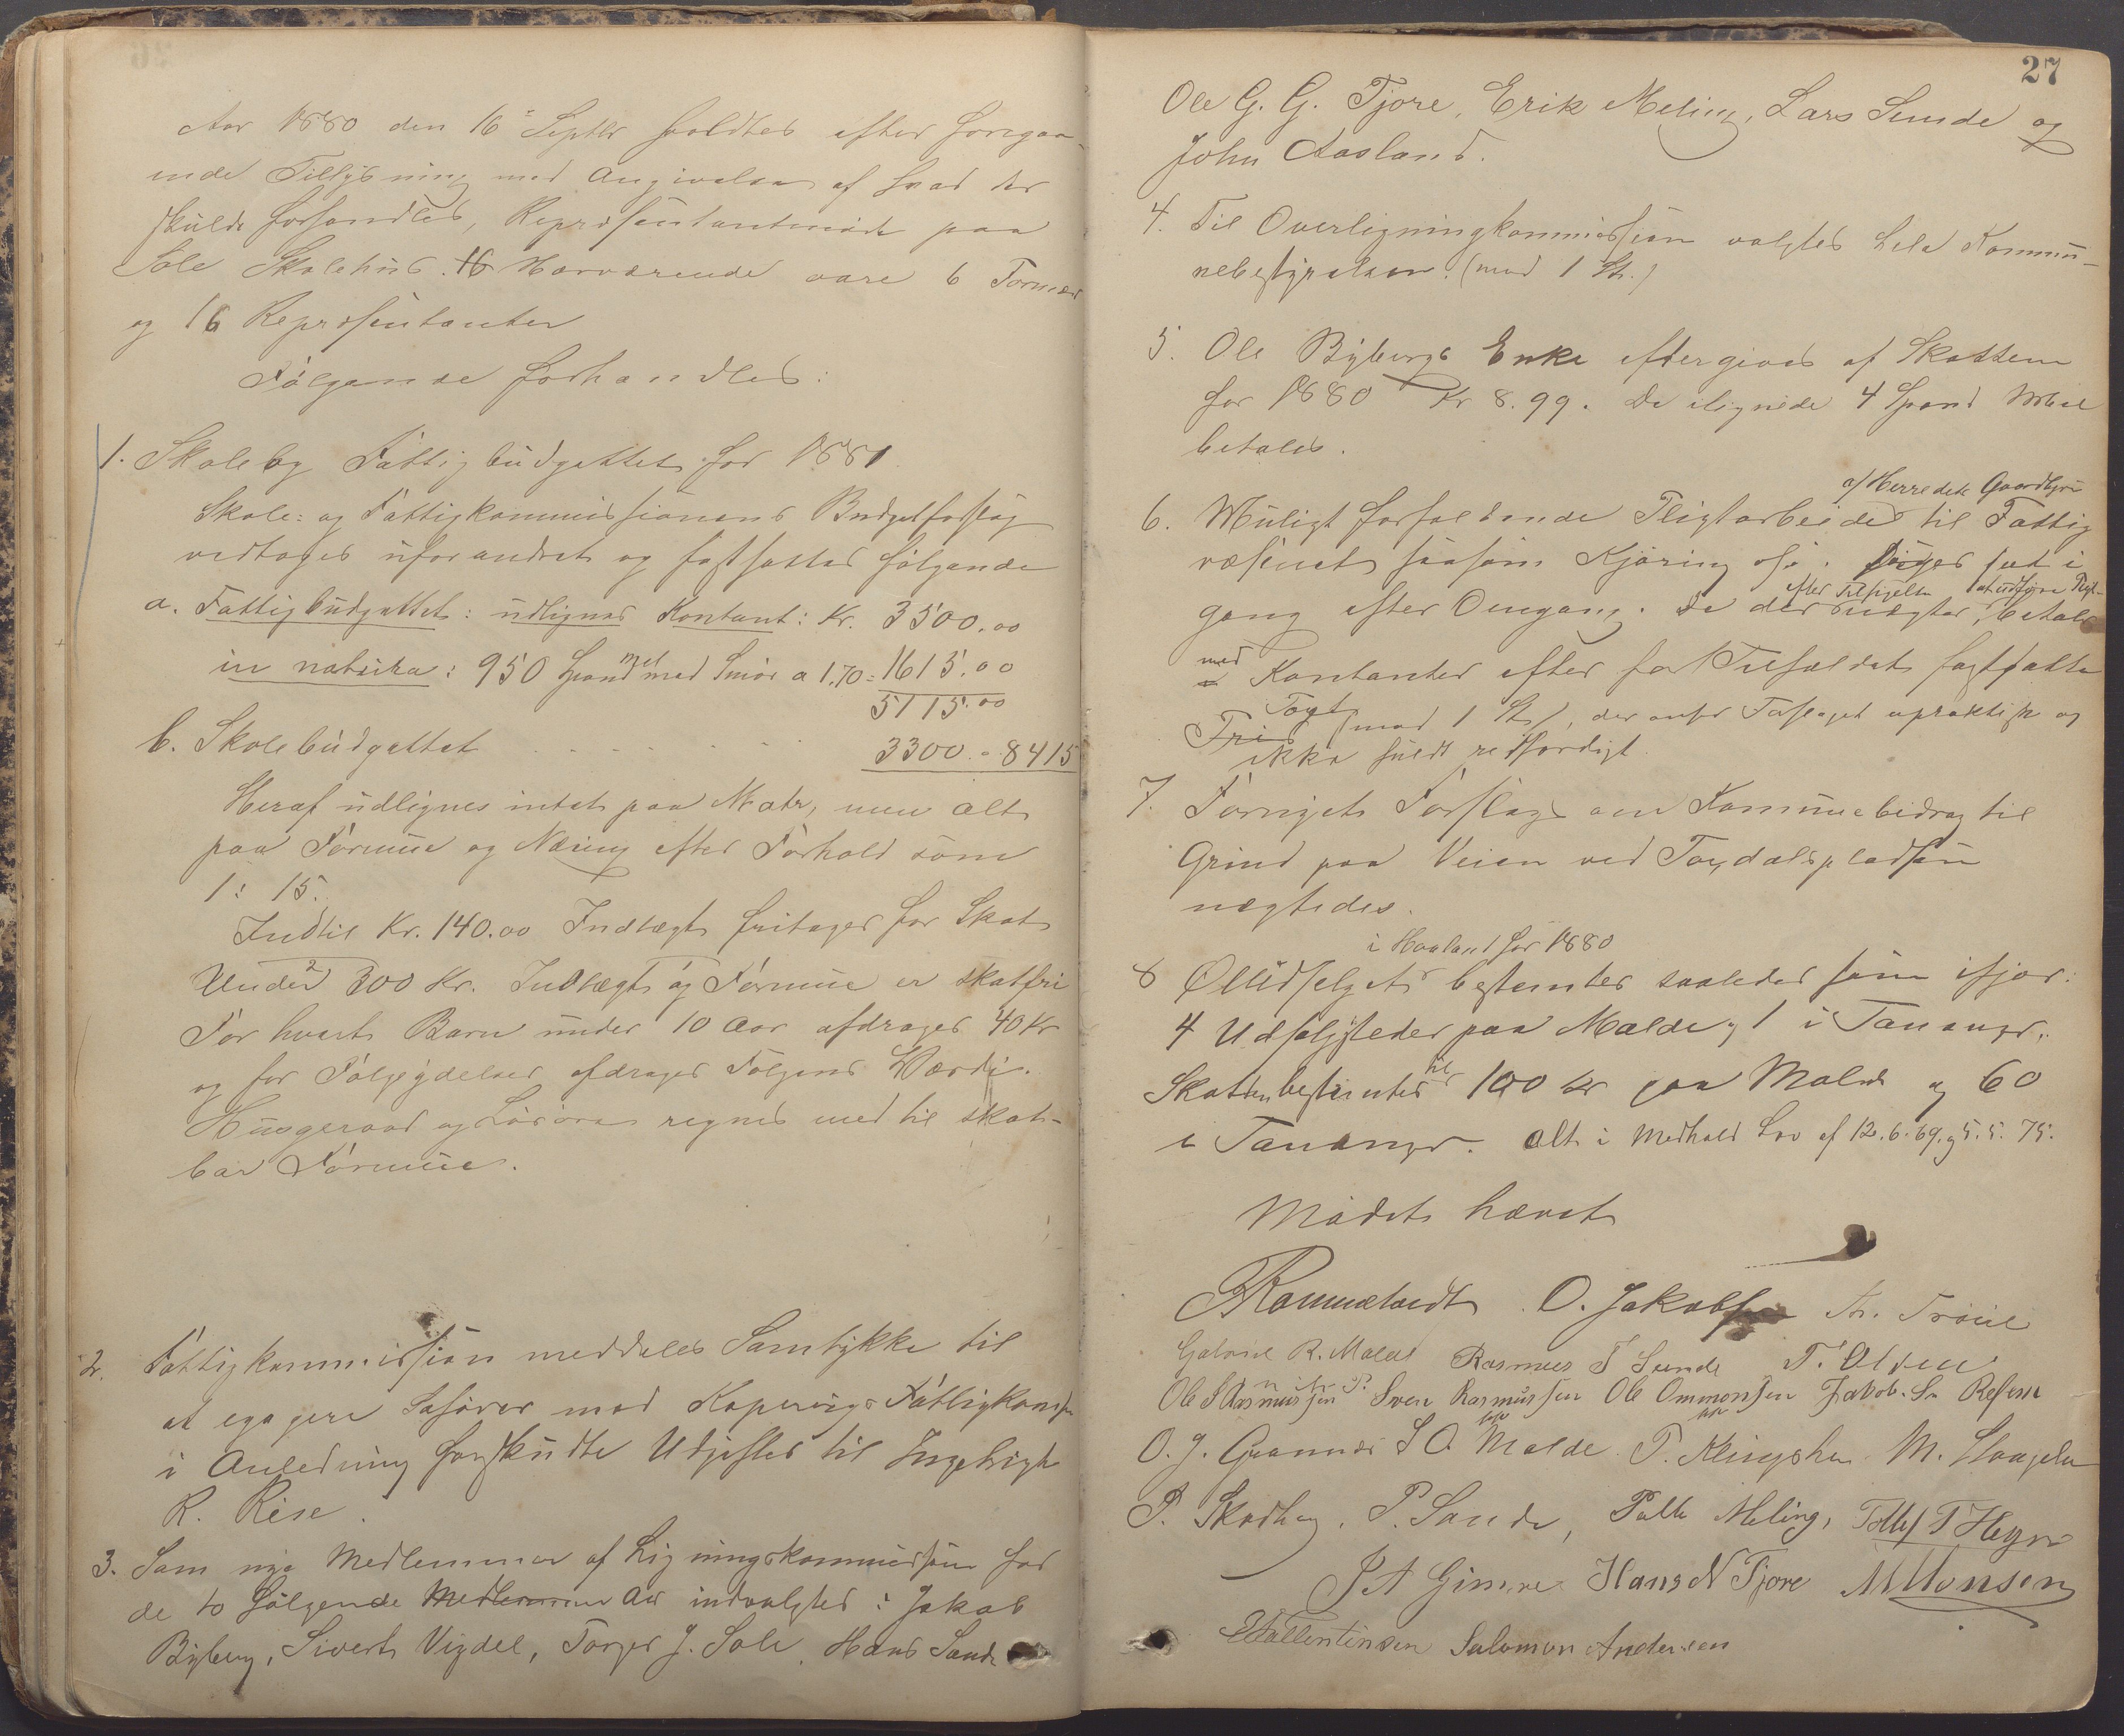 Aar 1880 den 16de Septbr holdtes efter foregaa-
ende Tillysning med Angivelse af hvad der
skulde forhandles, Repræsentantmøde paa
Sole Skolehus. Nærværende vare 6 Formænd
og 16 Repræsentanter
Følgende forhandles:
1. Skole og Fattigbudgettet for 1881
Skole- og Fattigkommissionens Budgetforslag
vedtoges uforandret og fastsattes følgende
a. Fattigbudgettet: udlignes Kontant: Kr. 3500.00
in natura: 950 Spand mel med Smør a 1.70 = 1615.00
5115.00
b. Skolebudgettet . . . . . . 3300. - 8415
Heraf udlignes intet paa Matr, men alt
paa Formue og Næring efter Forhold som
1: 15.
Indtil Kr. 140.00 Indtægt fritages for Skat
Under 300 Kr. Indtægt og Formue er skatfri
For hvert Barn under 10 Aar afdrages 40 Kr
og for Følgeydelser afdrages Følgens Værdi.
Husgeraad og Løsøre regnes med til skat-
bar Formue.
2. Fattigkommission meddeles Samtykke til
at gjøre Søfører mod Kopervigs Fattigkom
i Anledning forskudte Udgifter til Ingebrigt
R. Rise.
3. Som nye Medlemmer af Ligningskommission for
de to følgende Medlemmer Aar indvalgtes: Jakob
Byberg, Sivert Vigdel, Torger J. Sole, Hans Sande
27
Ole G. G. Tjore, Erik Meling, Lars Sunde og
John Aasland.
4. Til Overligningkommission valgtes hele Kommu-
nebestyrelsen. (mod 1 St.)
5. Ole Bybergs Enke eftergives af Skatten
for 1880 Kr 8.99. De ilignede 4 Spand Mel
betales.
af Herredets Gaardbru
6. Muligt forfaldende Pligtarbeide til Fattig
væsenet saasom Kjøring osv. sut i
efter Tilsigelse at udføre Pligt-
gang efter Omgang. De der nægter, betale
med Kontanter efter for Tilfældet fastsatte
Taxt (mod 1 St), der anser Forslaget upraktisk og
ikke fuldt retfærdigt.
7. Fornyet Forslag om Kommunebidrag til
Grind paa Veien ved Tordalspladsen
nægtedes.
i Haaland for 1880
8 Øludsalget bestemtes saaledes som ifjor:
4 Udsalgsteder paa Malde og 1 i Tananger.
Skatten bestemtes til 100 kr paa Malde og 60
i Tananger. Alt i Medhold Lov af 12.6.69. og 5.5.75.
Mødet hævet
Rommetvedt O. Jakobsen
Gabriel R. Malde Rasmus T Sunde T. Olsen
Ole S Rasmussen Sven Rasmussen Ole Ommonsen Jakob. Sn Refsnes
O. J. Grannes S O Malde. P. Klingsheim M. Skaagelu
P. Skadberg, P. Sande, Palle Meling, Tollef T Hegre
J A Gimre Hans N Tjore M Monsen
E Vallentinsen Salomon Andersen